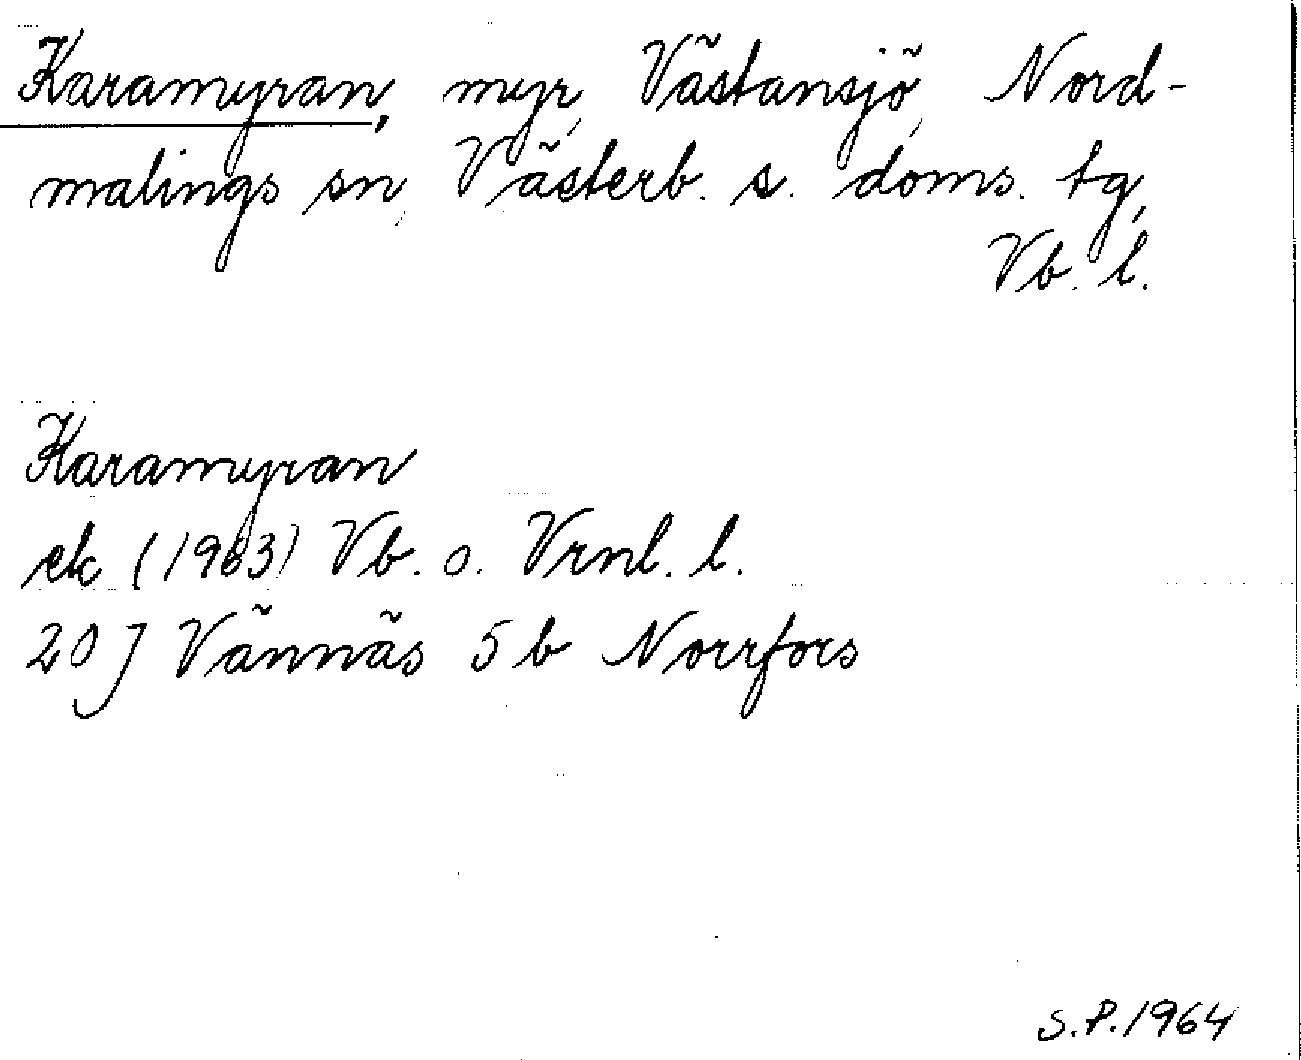 Karamyran, myr, Västansjö, Nord-
malings sn, Västerb. s. doms. tg,
Vb. l.
Karamyran
ek (1963) Vb. o. Vrnl. l.
20 J Vännäs 5 b Norrfors
S.P. 1964